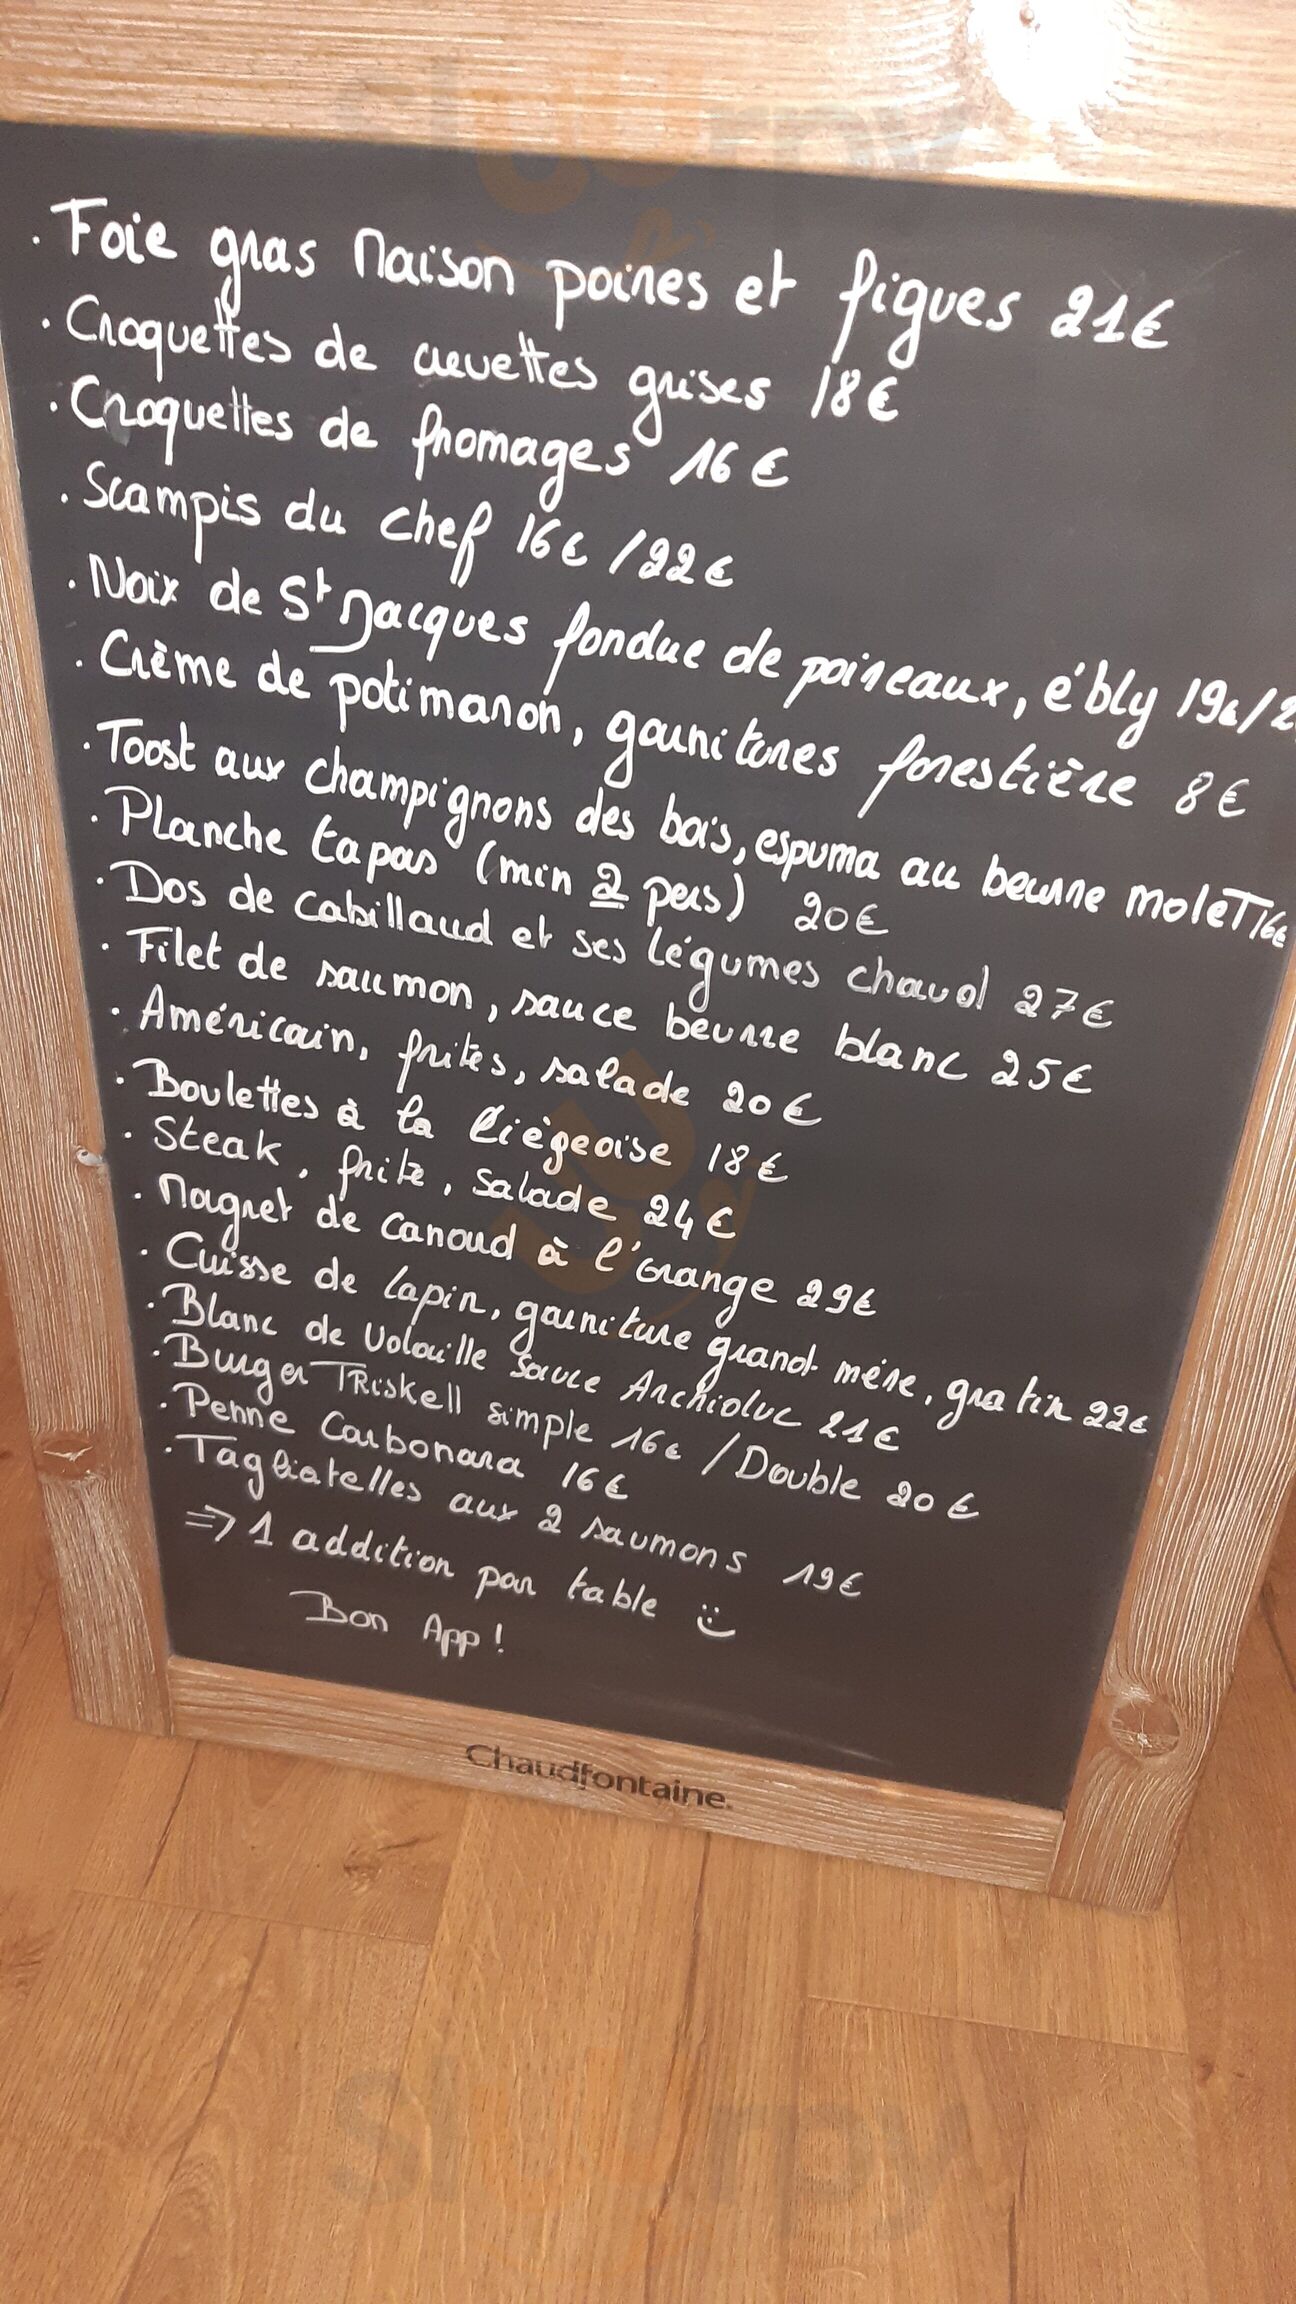 · Foie gras Maison poires et figues 21€
· Croquettes de crevettes grises 18€
· Croquettes de fromages 16€
· Scampis du chef 16€ / 22€
· Noix de St Jacques fondue de poireaux, ébly 19€/2
· Crème de potimaron, garnitures forestière 8€
· Toost aux champignons des bois, espuma au beurre moleT 16€
· Planche tapas (min 2 pers) 20€
· Dos de cabillaud et ses légumes chaud 27€
· Filet de saumon, sauce beurre blanc 25€
· Américain, frites, salade 20€
· Boulettes à la liègeoise 18€
· Steak, frite, salade 24€
· Magret de canard à l'orange 29€
· Cuisse de lapin, garniture grand mère, gratin 22€
· Blanc de volaille sauce Archiduc 21€
· Burger TRiskell simple 16€ / Double 20€
· Penne Carbonara 16€
· Tagliatelles aux 2 saumons 19€
⇒ 1 addition par table :)
Bon App!
Chaudfontaine.
slurpy
slurpy